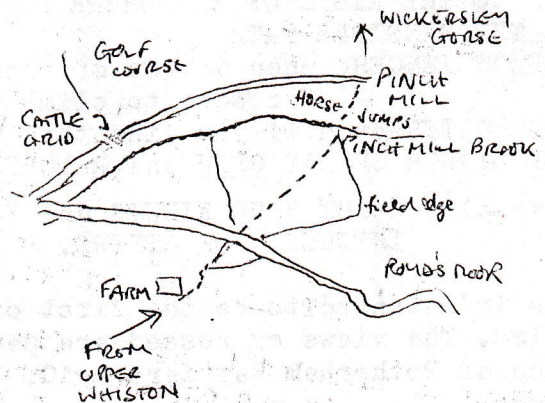 WICKERSLEY
GORSE
GOLF
COURSE
PINCH
MILL
HORSE
JUMPS
CATTLE
GRID
PINCH MILL BROOK
field edge
MOOR
FARM
FROM
UPPER
WHISTON